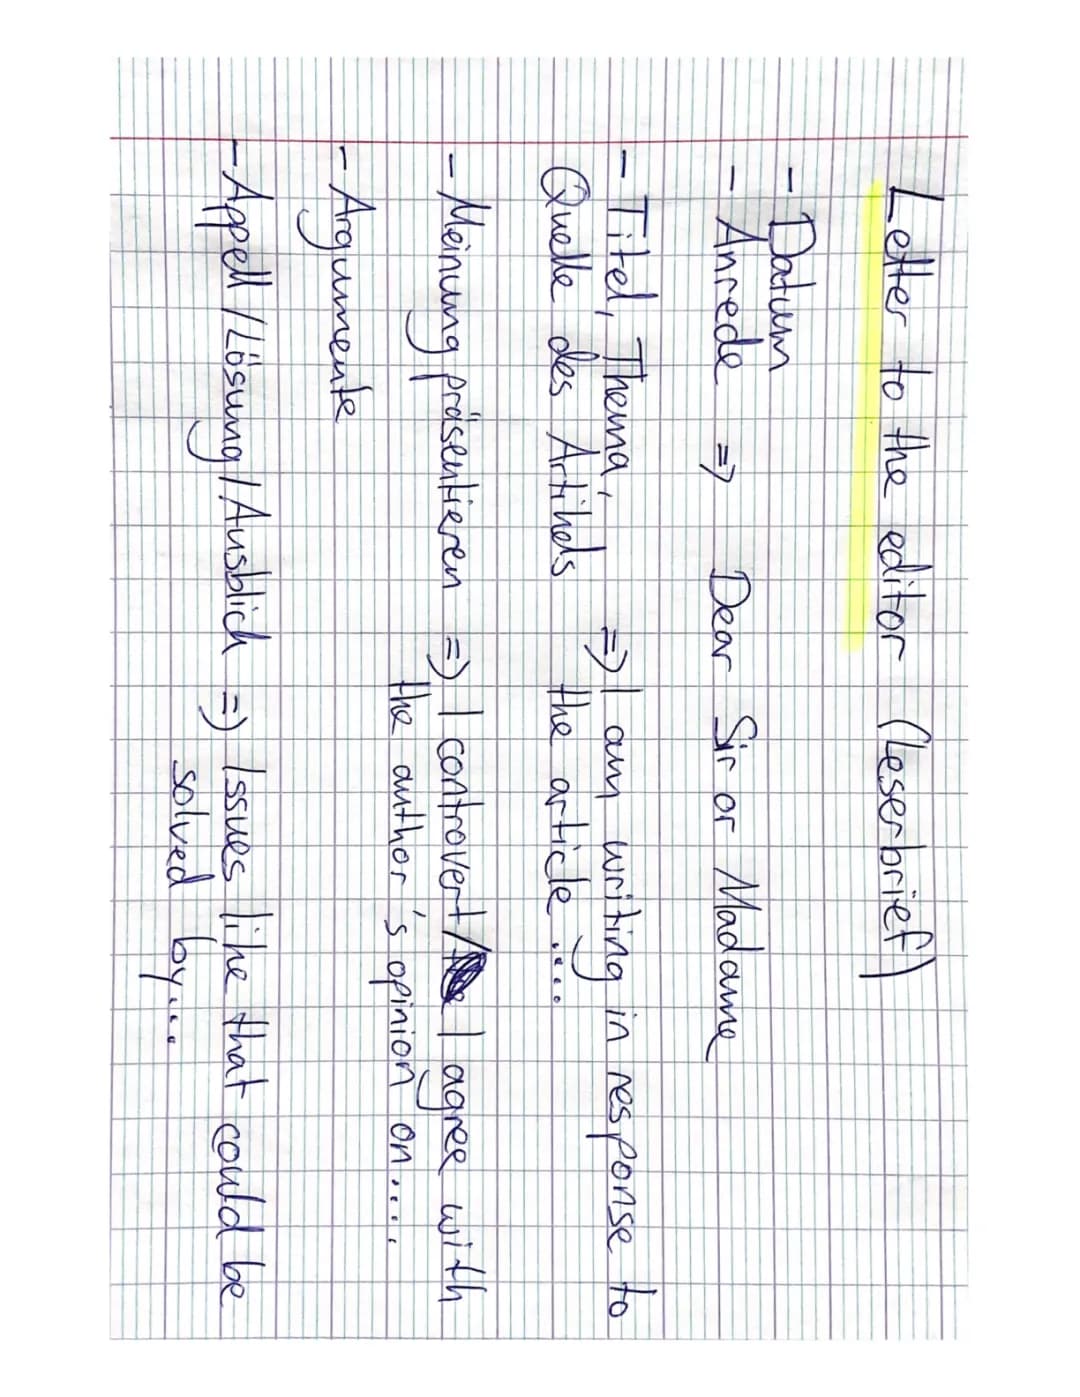 Letter to the editor (Leserbrief)
- Datum
- Anrede => Dear Sir or Madame
- Titel, Thema, => I am writing in response to
Quelle des Artikels the article ....
- Meinung präsentieren => I controvert/ I agree with
the author's opinion on....
- Argumente
- Appell/Lösung/Ausblick => Issues like that could be
solved by...